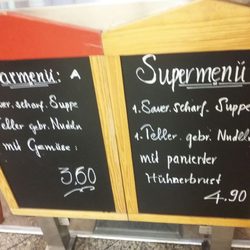 armenü: A
auer. scharf. Suppe
Teller gebr. Nudeln
mit Gemüse:
3.60
Supermenü
1. Sauer. scharf. Suppe
1. Teller. gebr. Nudel
mit panierter
Hühnerbrust
4.90